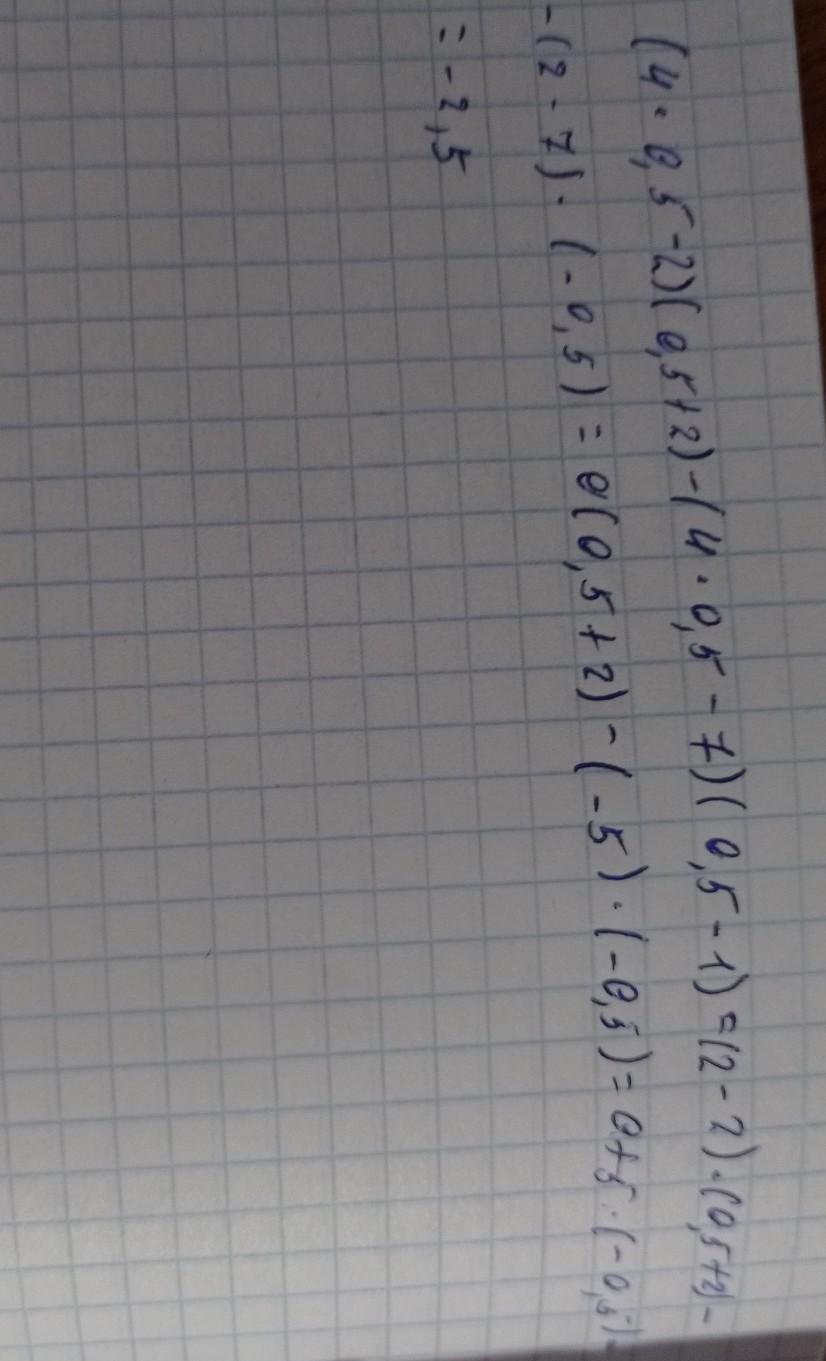 (4·0,5-2)(0,5+2)-(4·0,5-7)(0,5-1)=(2-2)·(0,5+2)-
-(2-7)·(-0,5)=0(0,5+2)-(-5)·(-0,5)=0+5·(-0,5)=
=-2,5